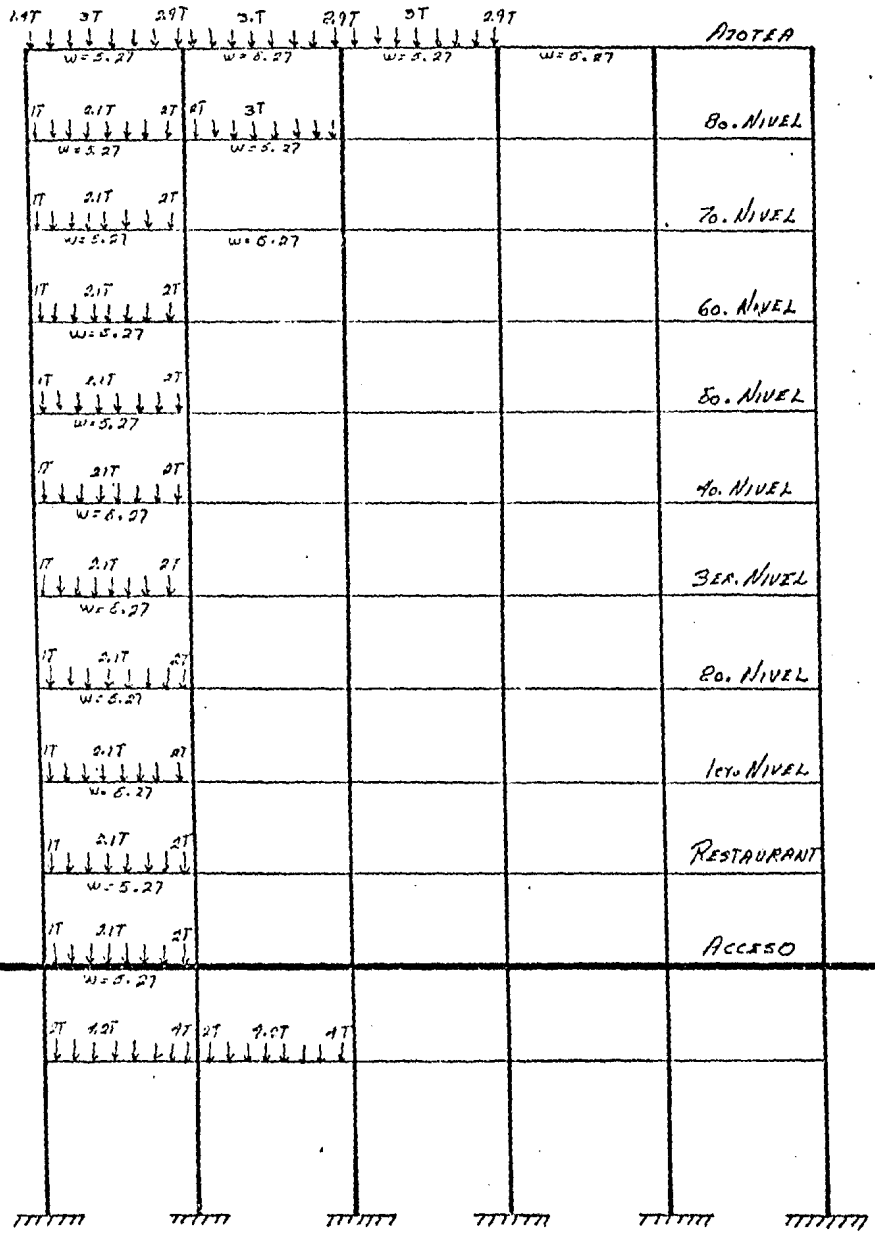 1.4T 3T 2.9T 3.T 2.9T 3T 2.9T
AZOTEA
w=5.27 w=5.27 w=5.27 w=5.27
1T 2.1T 2T 2T 3T
8o. NIVEL
w=5.27 w=5.27
1T 2.1T 2T
7o. NIVEL
w=5.27 w=5.27
1T 2.1T 2T
6o. NIVEL
w=5.27
1T 2.1T 2T
5o. NIVEL
w=5.27
1T 2.1T 2T
4o. NIVEL
w=5.27
1T 2.1T 2T
3ER. NIVEL
w=5.27
1T 2.1T 2T
2o. NIVEL
w=5.27
1T 2.1T 2T
1ero. NIVEL
w=5.27
1T 2.1T 2T
RESTAURANT
w=5.27
1T 2.1T 2T
ACCESO
w=5.27
2T 4.2T 4T 2T 4.2T 4T